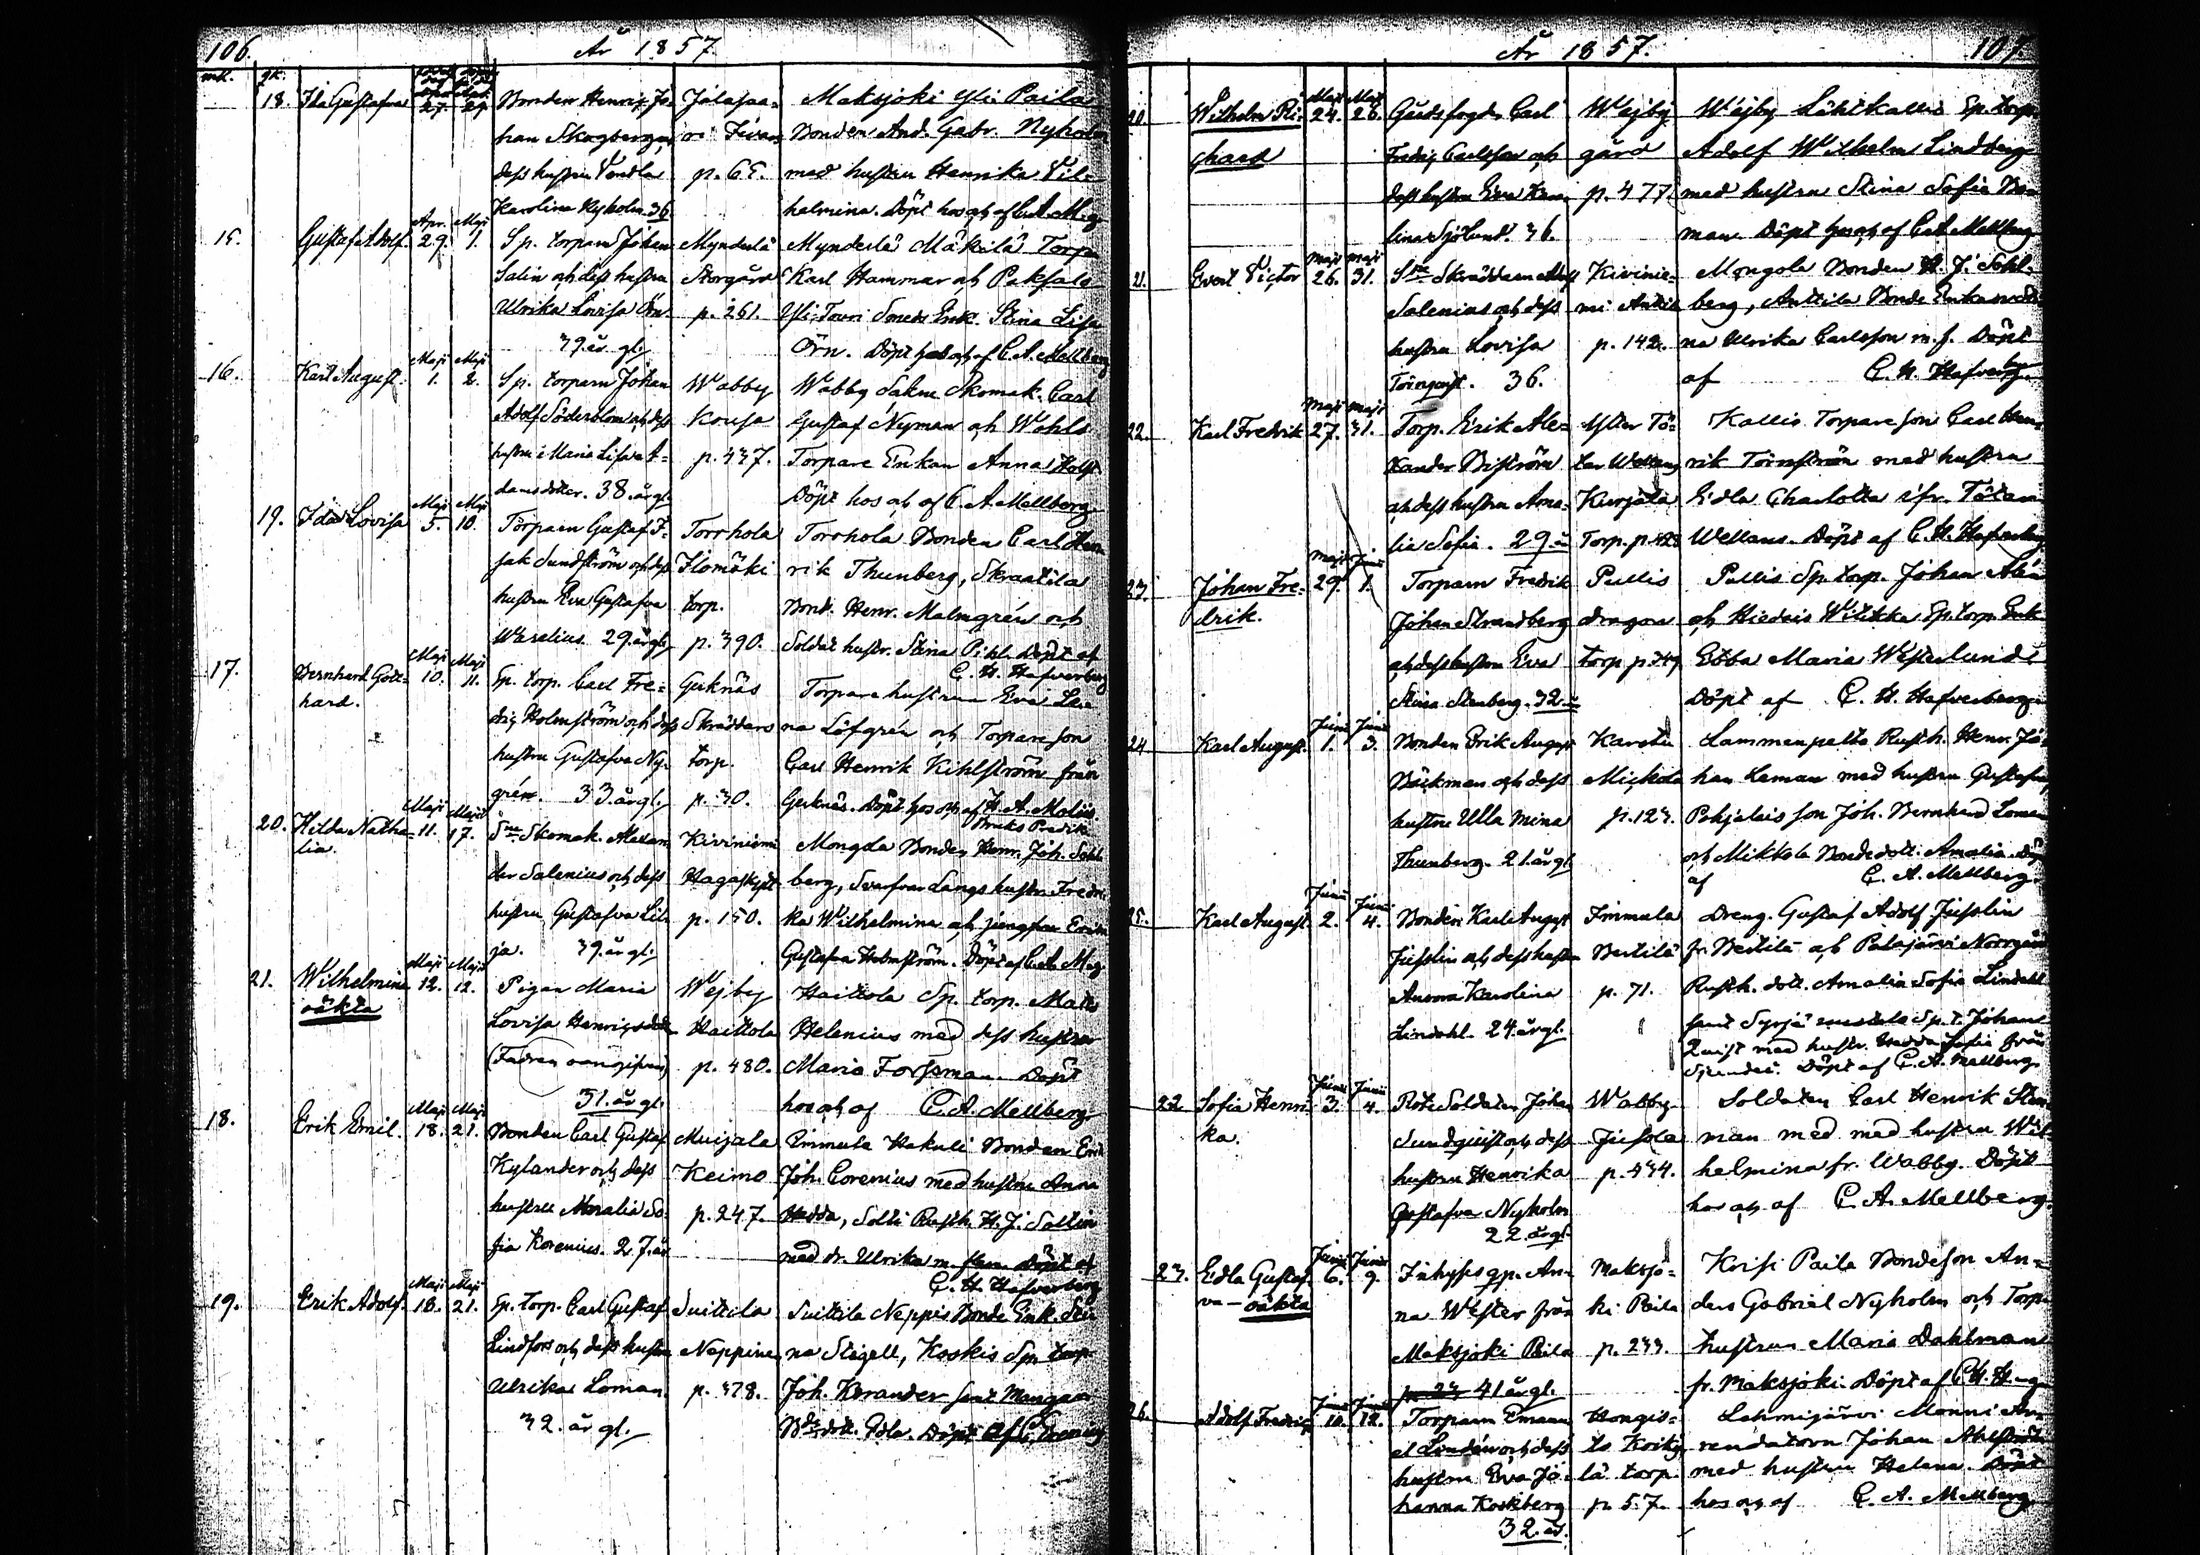 106.
År 1857.
mk.
qk.
18.
Ida Gustafva
27.
29.
Bonden Henrik Jo-
han Skogberg
dess hustru Vendla
Karolina Nyholm 36
p. 65.
Maksjoki Yli Paila
Bonden And. Gabr. Nyholm
med hustru Henrika Vil-
helmina. Döpt hos af C.A. M-g
15.
Gustaf Adolf.
Apr. 29.
Maji 1.
Sp. torparn Johan
Salin och dess hustru
Ulrika Lovisa Örn
39. år gl.
Mynderlä
Storgård
p. 261.
Mynderlä Mäkilä Torp.
Karl Hammar och
Yli-Touri Enk. Stina Lisa
Örn. Döpt hos af C. A. Mellberg
16.
Karl August.
Maji 1.
Maji 2.
Sp. torparn Johan
Adolf Söderblom och dess
hustru Maria Lisa A-
damsdotter. 38. år gl.
Wabby
Kousa
p. 437.
Wabby Skomak. Carl
Gustaf Nyman och Wohls
Torpare Enkan Anna
Döpt hos af C. A. Mellberg
19.
Ida Lovisa
Maji 5.
Maji 10.
Torparn Gustaf I-
sak Sundström och dess
hustru Eva Gustafva
Weselius. 29. år gl.
Torrhola
Ilomäki
torp.
p. 390.
Torrhola Bonden Carl Hen-
rik Thunberg, Skraatila
Bond. Henr. Malmgrén och
Soldat hustr. Stina Pihl. Döpt af
C. H. Hafverberg
17.
Bernhard Gott-
hard.
Maji 10.
Maji 11.
Sp. torp. Carl Fre-
drig Holmström och dess
hustru Gustafva Ny-
grén. 33. år gl.
Gerknäs
Skräddars
torp.
p. 30.
Torpare hustrun Eva Le-
na Löfgrén och Torpare son
Carl Henrik Kihlström från
Gerknäs. Döpt hos af H. A. Malin
Bruks Predik.
20.
Hilda Natha-
lia.
Maji 11.
Maji 17.
Skomak. Alexan-
der Salenius och dess
hustru Gustafva Lil-
ja. 39. år gl.
Kiviniemi
p. 150.
Mongola Bonden Henr. Joh. Sohl-
berg, Svarfvar Längs hustru Fredri-
ka Wilhelmina och jungfru
Gustafva Holmström. Döpt af C. A. M-g
21.
Wilhelmina
oäkta
Maji 12.
Maji 12.
Pigan Maria
Lovisa Henrigsdott.
(Fadren oangifven)
31. år gl.
Wejby
Haittola
p. 480.
Haittola Sp. torp. Matts
Helenius med dess hustru
Maria Forssman. Döpt
hos af C. A. Mellberg
18.
Erik Emil.
Maji 18.
Maji 21.
Bonden Carl Gustaf
Kylander och dess
hustru Amalia So-
fia Korenius. 27. år
Muijala
Keimo
p. 247.
Immula Hakuli Bonden Erik
Joh. Corenius med hustru Anna
Hedda, Solti Rusth. H. J. Sallin
med dr. Ulrika m. fam. Döpt af
C. H. Hafverberg
19.
Erik Adolf.
Maji 18.
Maji 21.
Sp. torp. Carl Gustaf
Lindfors och dess hustru
Ulrika Loman.
32. år gl.
Suittila
Neppine
p. 378.
Suittila Neppis Bonde Enk. Sti-
na Stigell, Koskis Sp. torp.
Joh. Korander samt
Bde dott. Edla. Döpt af
År 1857.
107.
20.
Wilhelm Ri-
ghard
Maji 24.
Maji 26.
Gårdsfogden Carl
Fredrig Carlsson och
dess hustru Eva Karo-
lina Sjölund. 36.
Wejby
gård
p. 477.
Wejby Lähtkallio Sp. torp.
Adolf Wilhelm Lindberg
med hustru Stina Sofia Bo-
man. Döpt hos af C. A. Mellberg
21.
Evert Victor
Maji 26.
Maji 31.
Skräddarn Adolf
Salenius och dess
hustru Lovisa
Törnqvist. 36.
Kivinie-
mi Anttila
p. 142.
Mongola Bonden H. J. Sohl-
berg, Anttila Bonde Enkan
na Ulrika Carlsson m. f. Döpt
af C. H. Hafverberg
22.
Karl Fredrik
Maji 27.
Maji 31.
Torp. Erik Ale-
xander Biström
och dess hustru Ama-
lia Sofia. 29. år
Ytter Tö-
tar
Kurjala
Torp. p. 423
Kallis Torpare son Carl Hen-
rik Törnström med hustru
Edla Charlotta ifr. Tötar
Wellans. Döpt af C. H. Hafverberg
23.
Johan Fre-
drik.
Maji 29.
Junii 1.
Torparn Fredrik
Johan Strandberg
och dess hustru Eva
Stina Stenberg. 32. år
Pullis
dragon
torp p. 349
Pullis Sp. torp. Johan Alén
och Hiedois Wilikka Sp. torp. Enk.
Ebba Maria Westerlund.
Döpt af C. H. Hafverberg
24.
Karl August.
Junii 1.
Junii 3.
Bonden Erik August
Bäckman och dess
hustru Ulla Mina
Thunberg. 21. år gl.
Karstu
Mickola
p. 123.
Lammenpelto Rusth. Henr. Jo-
han Leman med hustru Gustafva,
Pohjalais son Joh. Bernhard Loman
och Mikkola Bondedott. Amalia. Döpt
af C. A. Mellberg.
25.
Karl August.
Junii 2.
Junii 4.
Bonden Karl August
Jusslin och dess hustru
Aurora Karolina
Lindahl. 24. år gl.
Immula
Bertilä
p. 71.
Dreng. Gustaf Adolf Jusslin
fr. Bertilä och Palajärvi Norrgård
Rusth. dott. Amalia Sofia Lindahl
samt Syrjä Sp. t. Johan
Quist med hustr. Hedda Sofia från
Döpt af C. A. Mellberg.
22.
Sofia Henri-
ka.
Junii 3.
Junii 4.
Rote Soldaten Johan
Sundquist och dess
hustru Henrika
Gustafva Nyholm
22. år gl.
Wabby
Jussola
p. 434.
Soldaten Carl Henrik Sten-
man med med hustru Wil-
helmina fr. Wabby. Döpt
hos af C. A. Mellberg.
23.
Edla Gustaf-
va — oäkta
Junii 6.
Junii 9.
Inhyses qp. An-
na Wester från
Maksjoki Paila
41 år gl.
Maksjo-
ki Paila
p. 233.
Krisi Paila Bondeson An-
ders Gabriel Nyholm och Torp.
hustrun Maria Dahlman
fr. Maksjoki. Döpt af C. H. H-g
26.
Adolf Fredrig
Junii 10.
Junii 12.
Torparn Emanu-
el Lindén och dess
hustru Eva Jo-
hanna Koskberg
32. år.
Hongis-
to Koiky-
lä torp.
p. 57.
Lehmijärvi Monni Ar-
rendatorn Johan Ahlström
med hustru Helena. Döpt
hos af C. A. Mellberg